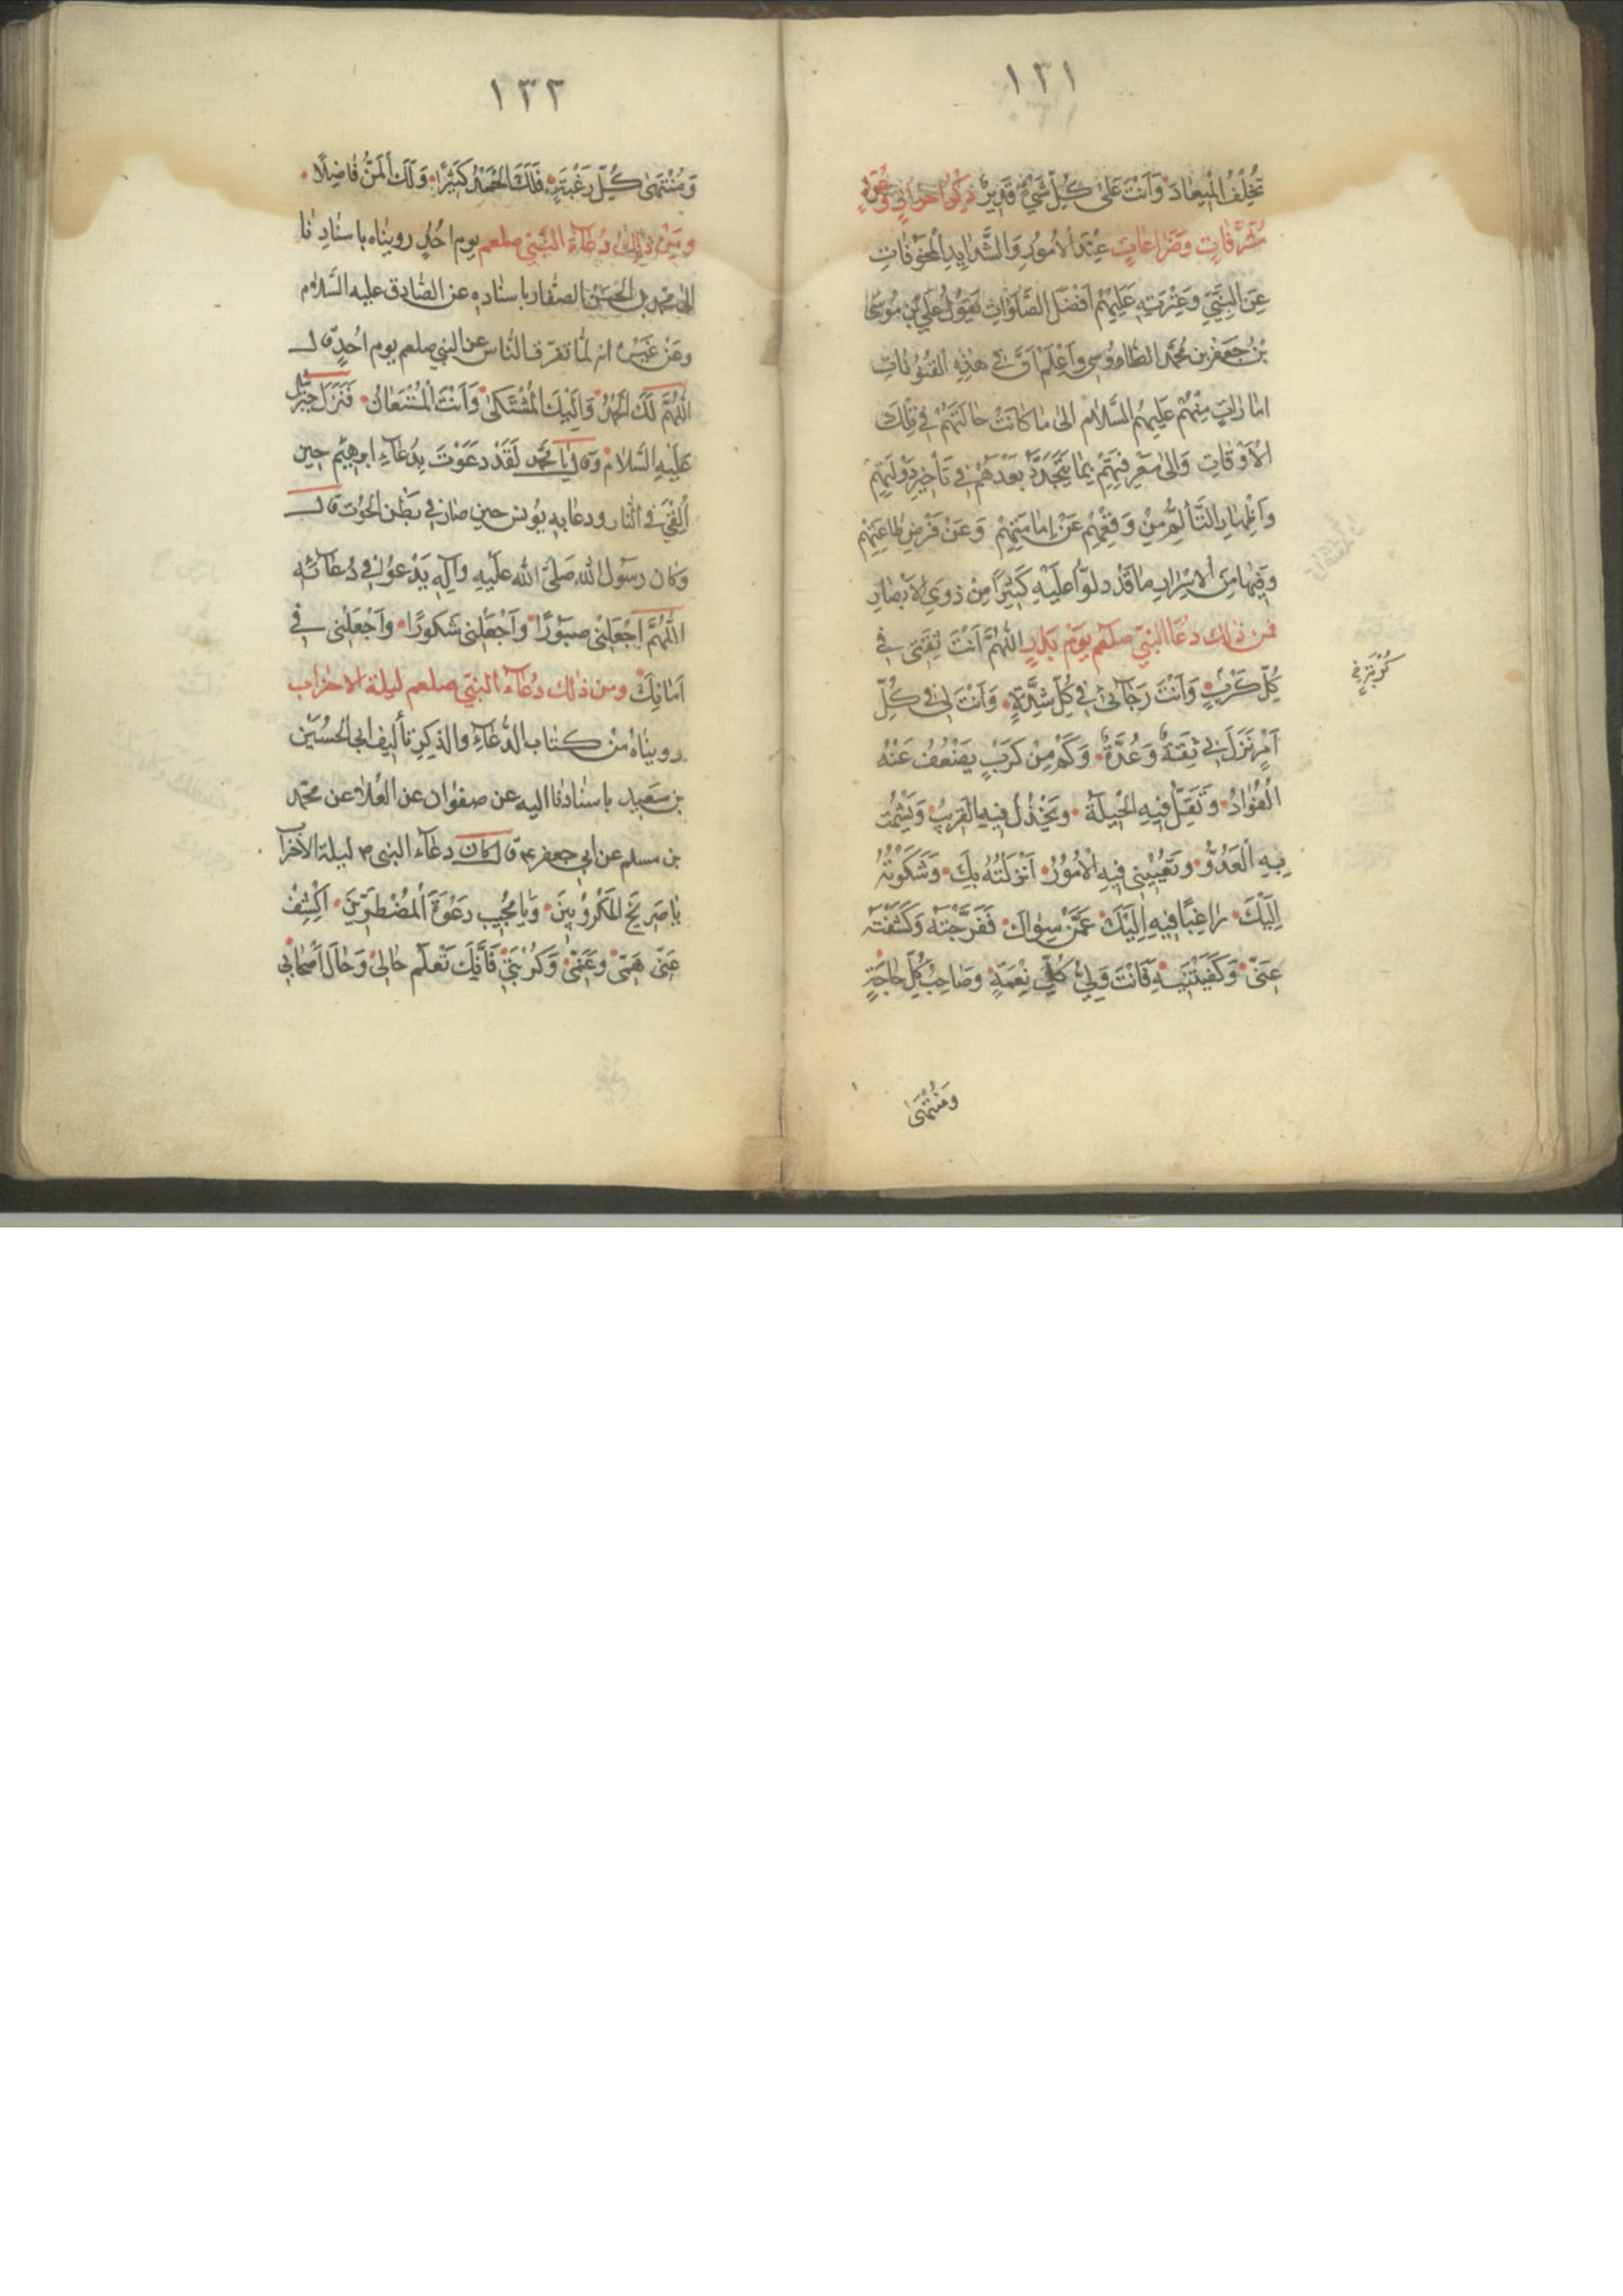 ١٣١
تُخْلِفُ الْمِيعَادَ وَأَنْتَ عَلَى كُلِّ شَيْءٍ قَدِيرٌ ذكر
مشرفات وضراعات عِنْدَ الأمُورِ وَالشَّدايِدِ الْمخوفاتِ
عَنِ النَّبِيِّ وَعِتْرَتِهِ عَلَيْهِمْ أَفْضَلُ الصَّلَوَاتِ يَقُولُ عَلِيُّ بْنُ مُوسَى
بْنِ جَعْفَرِ بن مُحَمَّد الطاووسي وَاعْلَمْ أَنَّ في هَذِهِ القُنُوتاتِ
امارات مِنْهُم عَلَيهِمُ السَّلام الى مَا كَانَتْ حَالَتُهُمْ فِي تِلْكَ
الْأَوْقَاتِ وَالى مَعْرِفَتِهِمْ بِمَا يَتَجَدَّدُ بَعْدَهُمْ فِي تَأْخِيرِ دَوْلَتِهِمْ
وَاظْهارِ التَّأَلُّمِ مِنْ دَفْعِهِمْ عَنْ إِمَامَتِهِمْ وَعَنْ فَرْضِ طاعَتِهِمْ
وَفِيهَا مِنَ الأسْرَارِ مَا قَدْ دلّوا عَلَيْهِ كَثِيرًا مِنْ ذَوِي الأبْصارِ
فمن ذلك دُعَا النبيّ صلعم يَوْمَ بَدْرٍ اللَّهُمَّ أَنْتَ ثِقَتِي فِي
كُلِّ كَرْبٍ وَأَنْتَ رَجَآئِي فِي كُلِّ شِدَّةٍ وَأَنْتَ لِي فِي كُلِّ
أَمْرٍ نَزَلَ بِي ثِقَةٌ وَعُدَّةٌ وَكَمْ مِنْ كَرْبٍ يَضْعُفُ عَنْهُ
الْفُؤادُ وَتَقِلُّ فِيهِ الْحِيلَةُ وَيَخْذُلُ فِيهِ الْقَرِيبُ وَيَشْمَتُ
بِهِ الْعَدُوُّ وتَعْيِينِي فِيهِ الْأُمُورُ أَنْزَلْتُهُ بِكَ وَشَكَوْتُهُ
إِلَيْكَ رَاغِبًا فِيهِ إِلَيْكَ عَمَّنْ سِوَاكَ فَفَرَّجْتَهُ وَكَشَفْتَهُ
عَنِّي وَكَفَيْتَنِيهِ فَأَنْتَ وَلِيُّ كُلِّ نِعْمَةٍ وَصَاحِبُ كُلِّ حَاجَةٍ
وَمُنْتَهَى
١٣٢
وَمُنْتَهَى كُلِّ رَغْبَةٍ فَلَكَ الْحَمْدُ كَثِيرًا وَلَكَ الْمَنُّ فَاضِلًا
ومن ذلك دُعَاءُ النَّبِيّ صلعم يوم احُدٍ رويناه باسنادِنا
الى محمد بن الحَسَنِ الصفار باسناده عن الصَّادق عليه السَّلام
وعَنْ غَيْرِهِ انه لمّا تفرّق النّاس عن النبي صلعم يوم احُدٍ قال
اللَّهُمَّ لَكَ الْحَمْدُ وَإِلَيْكَ الْمُشْتَكَى وَأَنْتَ الْمُسْتَعَانُ فَنَزَلَ جبرئيل
عَلَيْهِ السَّلام وقال يا محمّد لَقَدْ دَعَوْتَ بِدُعَآءِ ابرهِيم حِين
أُلْقِيَ في النّار ودعا به يونس حين صار في بَطْنِ الحُوت قال
وَكان رسول الله صَلَّى الله عَلَيْهِ وَآلِهِ يَدْعُو في دُعَآئه
اللَّهُمَّ اجْعَلْنِي صَبُورًا وَاجْعَلْنِي شَكُورًا وَاجْعَلْنِي فِي
أَمَانِكَ ومن ذلك دُعَآء النبيّ صلعم ليلة الاحزاب
رويناهُ مِنْ كتاب الدُّعَآءِ والذكرِ تأليف الحُسَيْن
بن سَعِيد باسنادنا اليه عن صفوان عن العَلاء عن محمّد
بن مسلم عن ابي جعفر ع قال كان دعآء النبي ص ليلة الأحزاب
يَا صَرِيخَ الْمَكْرُوبِينَ وَيَا مُجِيبَ دَعْوَةِ الْمُضْطَرِّينَ اكْشِفْ
عَنِّي هَمِّي وَغَمِّي وَكَرْبِي فَإِنَّكَ تَعْلَم حَالِي وَحَالَ أَصْحَابِي